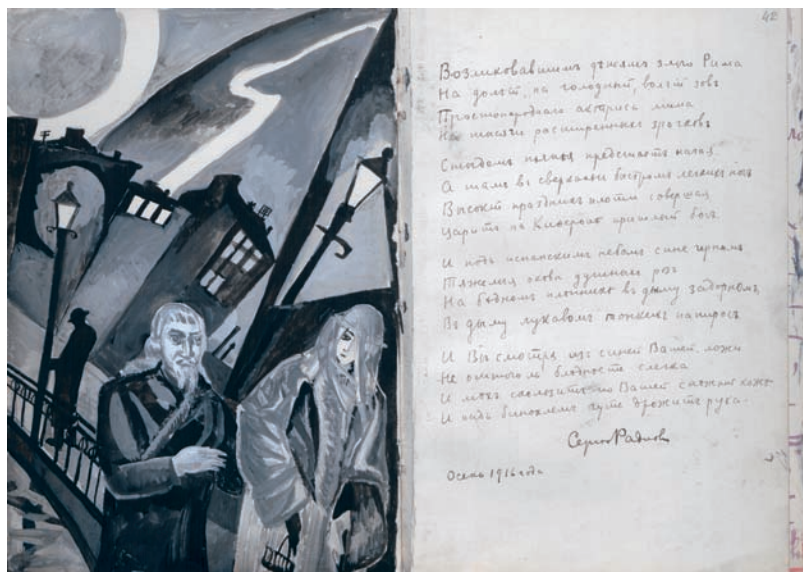 42
Возликовавшимъ дѣтямъ злого Рима
На долгій, на голодный волчій зовъ
Простонароднаго актриса мима
На тысячи расширенныхъ зрачковъ
Стыдомъ пьяна предстать нагая.
А тамъ въ сверканьи быстрыхъ легкихъ
Высокій праздникъ плоти совершая
Царитъ на Киѳеронѣ пришлый богъ.
И подъ испанскимъ небомъ сине чернымъ
Тяжелыя оковы душныхъ розъ
На бѣдномъ въ дыму задорномъ
Въ дыму лукавомъ тонкихъ папиросъ
И Вы смотря изъ синей Вашей ложи
Не оттого ль блѣднѣете слегка
И мохъ скользитъ по Вашей снѣжной кожѣ
И надъ биноклемъ чуть дрожитъ рука.
Сергѣй Радловъ
Осень 1916 года